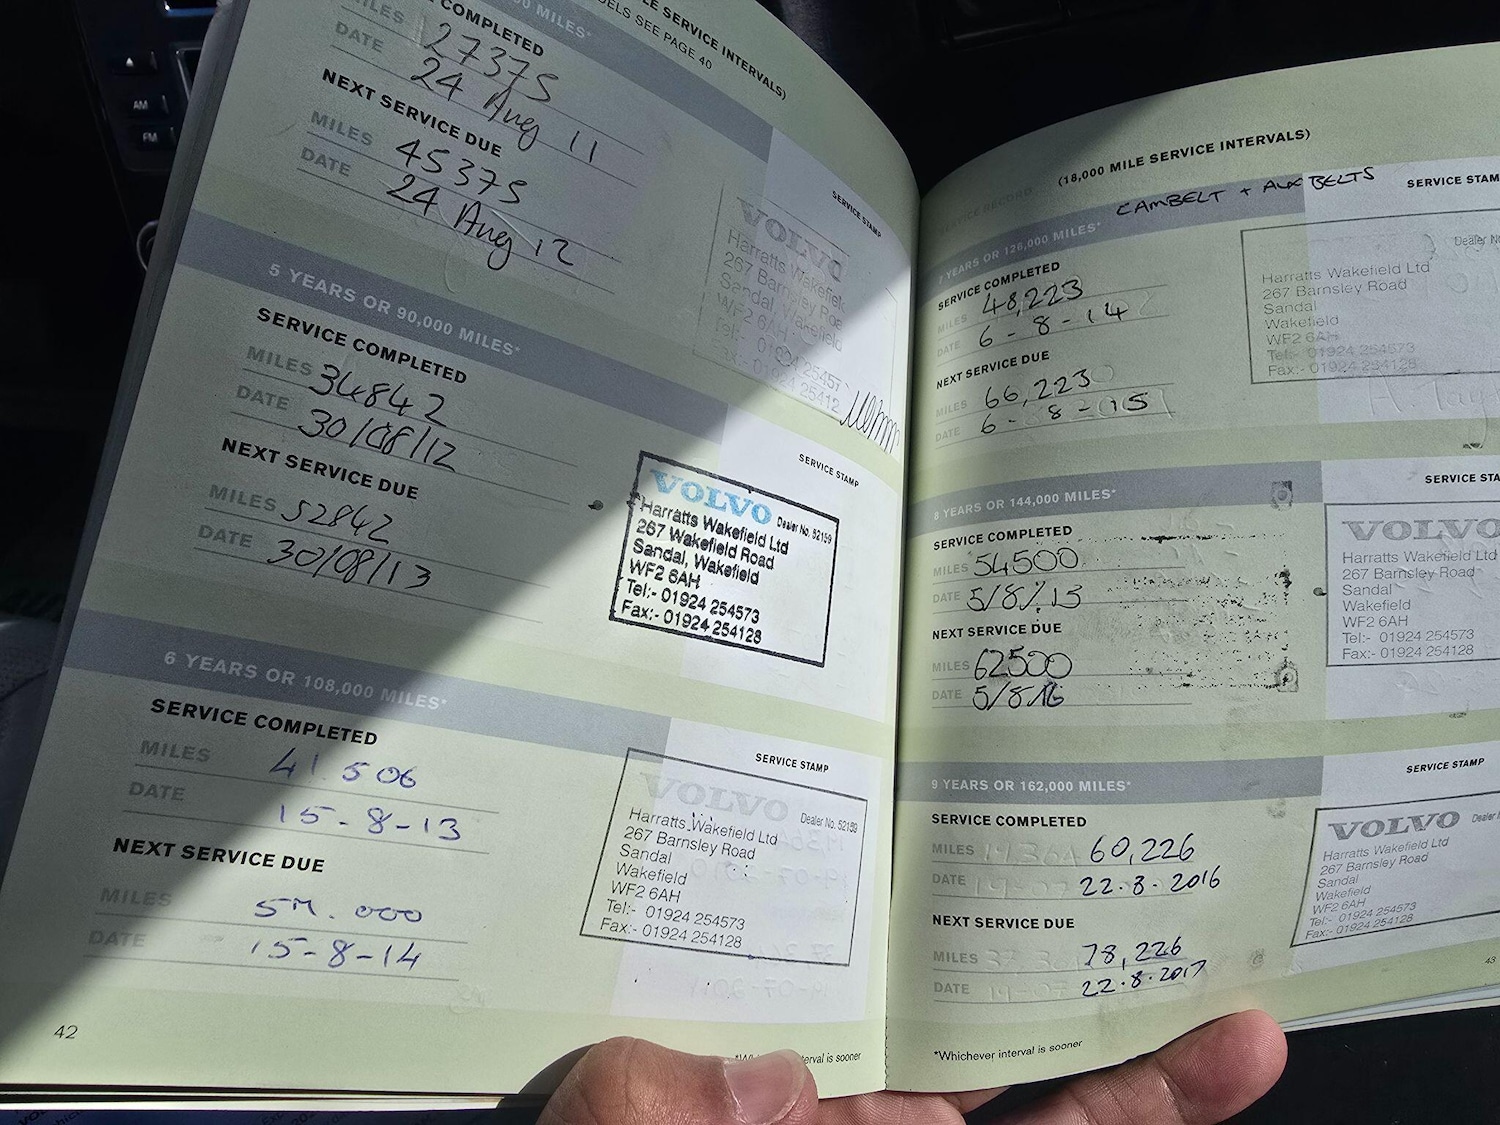 AM
FM
LE SERVICE INTERVALS)
DELS SEE PAGE 40
00 MILES*
COMPLETED
MILES 27375
DATE 24 Aug 11
NEXT SERVICE DUE
MILES 45375
DATE 24 Aug 12
SERVICE STAMP
VOLVO
Harratts Wakefiel
267 Barnsley Roa
Sandal, Wakefield
WF2 6AH
Tel:- 01924 25457
Fax:- 01924 25412
5 YEARS OR 90,000 MILES*
SERVICE COMPLETED
MILES 34842
DATE 30/08/12
NEXT SERVICE DUE
MILES 52842
DATE 30/08/13
SERVICE STAMP
VOLVO Dealer No. 52159
Harratts Wakefield Ltd
267 Wakefield Road
Sandal, Wakefield
WF2 6AH
Tel:- 01924 254573
Fax:- 01924 254128
6 YEARS OR 108,000 MILES*
SERVICE COMPLETED
MILES 41.506
DATE 15-8-13
NEXT SERVICE DUE
MILES
DATE 15-8-14
SERVICE STAMP
VOLVO
Dealer No. 52159
Harratts Wakefield Ltd
267 Barnsley Road
Sandal
Wakefield
WF2 6AH
Tel:- 01924 254573
Fax:- 01924 254128
42
erval is sooner
SERVICE RECORD (18,000 MILE SERVICE INTERVALS)
CAMBELT + AUX BELTS
7 YEARS OR 126,000 MILES*
SERVICE COMPLETED
MILES 48,223
DATE 6-8-14
NEXT SERVICE DUE
MILES 66,223
DATE 6-8-15
SERVICE STAM
Dealer No
Harratts Wakefield Ltd
267 Barnsley Road
Sandal
Wakefield
WF2 6AH
Tel:- 01924 254573
Fax:- 01924 254128
8 YEARS OR 144,000 MILES*
SERVICE COMPLETED
MILES 54500
DATE 5/8/15
NEXT SERVICE DUE
MILES 62500
DATE 5/8/16
SERVICE STA
VOLVO
Harratts Wakefield Ltd
267 Barnsley Road
Sandal
Wakefield
WF2 6AH
Tel:- 01924 254573
Fax:- 01924 254128
9 YEARS OR 162,000 MILES*
SERVICE COMPLETED
MILES 60,226
DATE 22.8.2016
NEXT SERVICE DUE
MILES 78,226
DATE 22.8.2017
SERVICE STAMP
VOLVO Dealer N
Harratts Wakefield Ltd
267 Barnsley Road
Sandal
Wakefield
WF2 6AH
Tel:- 01924 254573
Fax:- 01924 254128
43
*Whichever interval is sooner